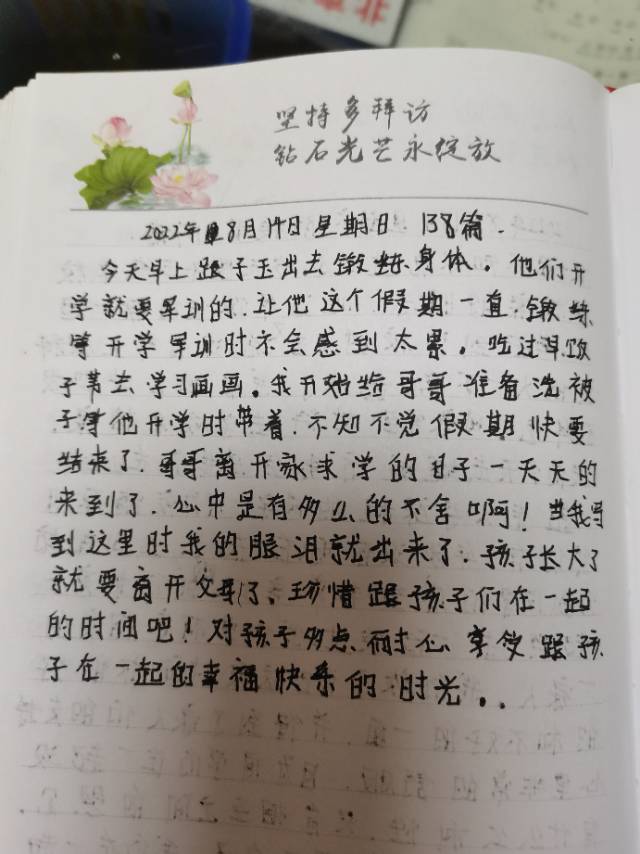 坚持多拜访
钻石光芒永绽放
2022年8月14日星期日 138篇.
今天早上跟子玉出去锻炼身体。他们开
学就要军训的.让他这个假期一直.锻炼
等开学军训时不会感到太累。吃过早饭
子芾去学习画画。我开始给哥哥准备洗被
子等他开学时带着.不知不觉假期快要
结束了.哥哥离开家求学的日子一天天的
来到了.心中是有多么的不舍啊！当我写
到这里时我的眼泪就出来了.孩子长大了
就要离开父母了、珍惜跟孩子们在一起
的时间吧！对孩子多点耐心享受跟孩
子在一起的幸福快乐的时光。.